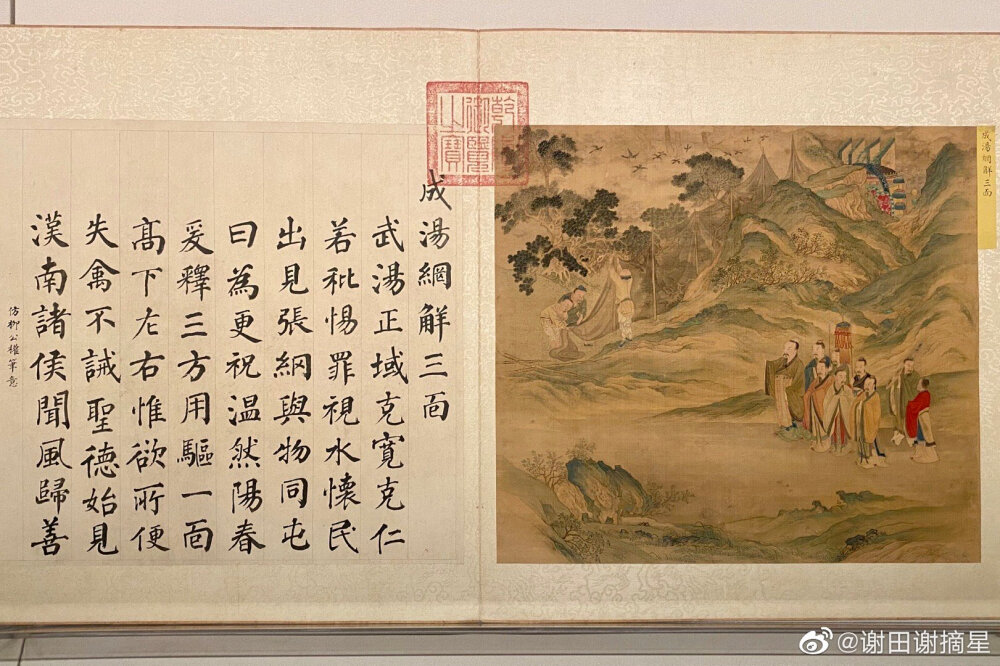 成湯網觧三面
乾隆御覽之寶
成湯網觧三面
武湯正域克寬克仁
若秕惕罪視水懷民
出見張網與物同屯
曰為更祝温然陽春
爰釋三方用驅一面
髙下左右惟欲所便
失禽不誡聖德始見
漢南諸侯聞風歸善
仿柳公權筆意
@谢田谢摘星